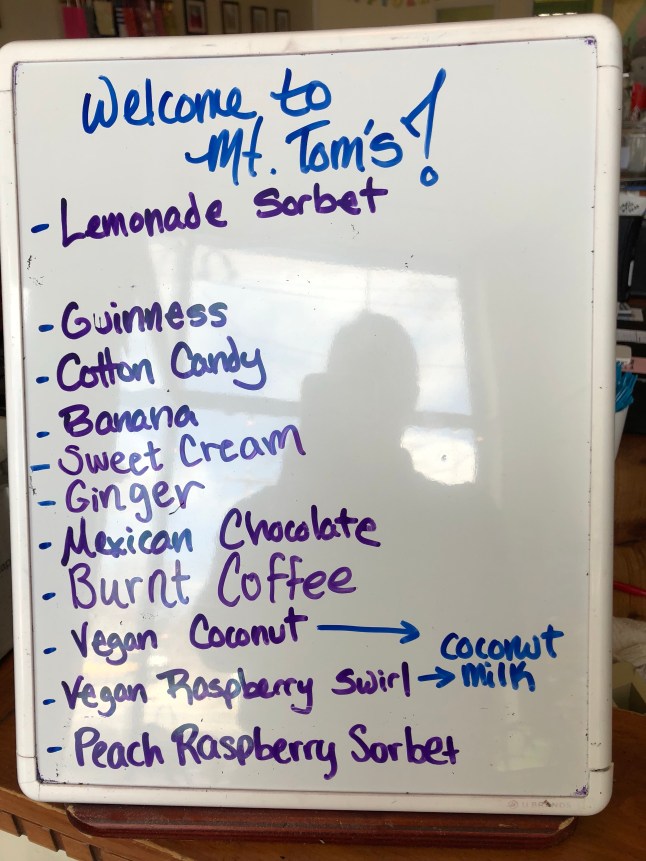 Welcome to
Mt. Tom's!
- Lemonade Sorbet
- Guinness
- Cotton Candy
- Banana
- Sweet Cream
- Ginger
- Mexican Chocolate
- Burnt Coffee
- Vegan Coconut → coconut
- Vegan Raspberry Swirl → milk
- Peach Raspberry Sorbet